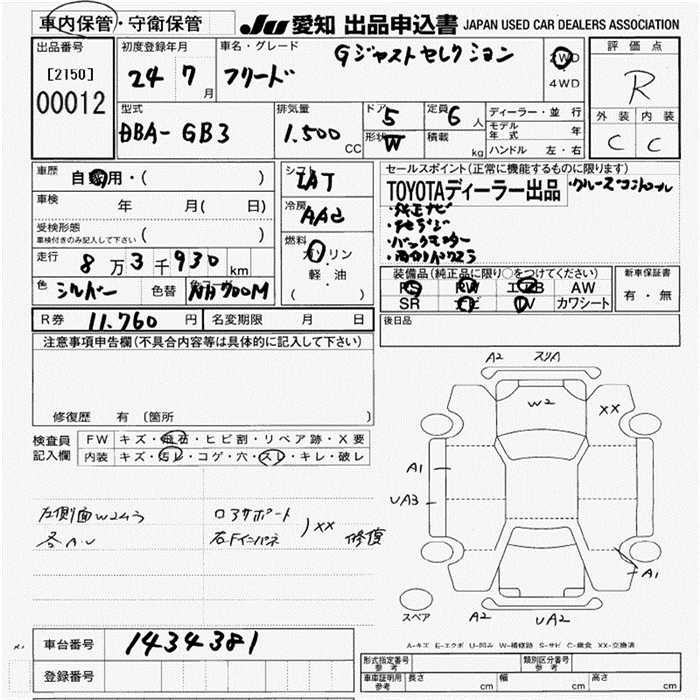 車内保管・守衛保管
JU 愛知 出品申込書 JAPAN USED CAR DEALERS ASSOCIATION
出品番号
[2150]
00012
初度登録年月
24 7 月
車名・グレード
フリード Gジャストセレクション
2WD
・
4WD
評価点
R
外装 内装
C C
型式
DBA-GB3
排気量
1.500 CC
ドア 5
形状 W
定員 6 人
積載 kg
ディーラー・並行
モデル年式 年
ハンドル 左・右
車歴
自家用・( )
車検
年 月( 日)
受検形態
車検付きのみ記入して下さい ( )
走行
8万3千930km
色 シルバー
色替
カラーNo. NH700M
シフト
IAT
冷房
AAC
燃料
ガソリン
・
軽・油
( )
セールスポイント(正常に機能するものに限ります)
TOYOTAディーラー出品 ・クルーズコントロール
・純正ナビ
・地デジ
・バックモニター
装備品(純正品に限り○をつけてください)
PS PW エアB AW
SR ナビ TV カワシート
新車保証書
有・無
R券 11.760 円
名変期限 月 日
後日品
注意事項申告欄(不具合内容等は具体的に記入して下さい)
修復歴 有 〔箇所 〕
検査員
記入欄
FW キズ・飛石・ヒビ割・リペア跡・X要
内装 キズ・汚レ・コゲ・穴・スレ・キレ・破レ
左側面W2大う
各A.U
ロアサポート
右Fインパネ
)XX 修復
A2 スリA
W2
XX
A1
UA3
A1
A2 UA2
スペア
A-キズ E-エクボ U-凹み W-補修跡 S-サビ C-腐食 XX-交換済
車台番号 1434381
登録番号
形式指定番号
参考
類別区分番号
参考
車庫証明用
参考
長さ cm
幅 cm
高さ cm